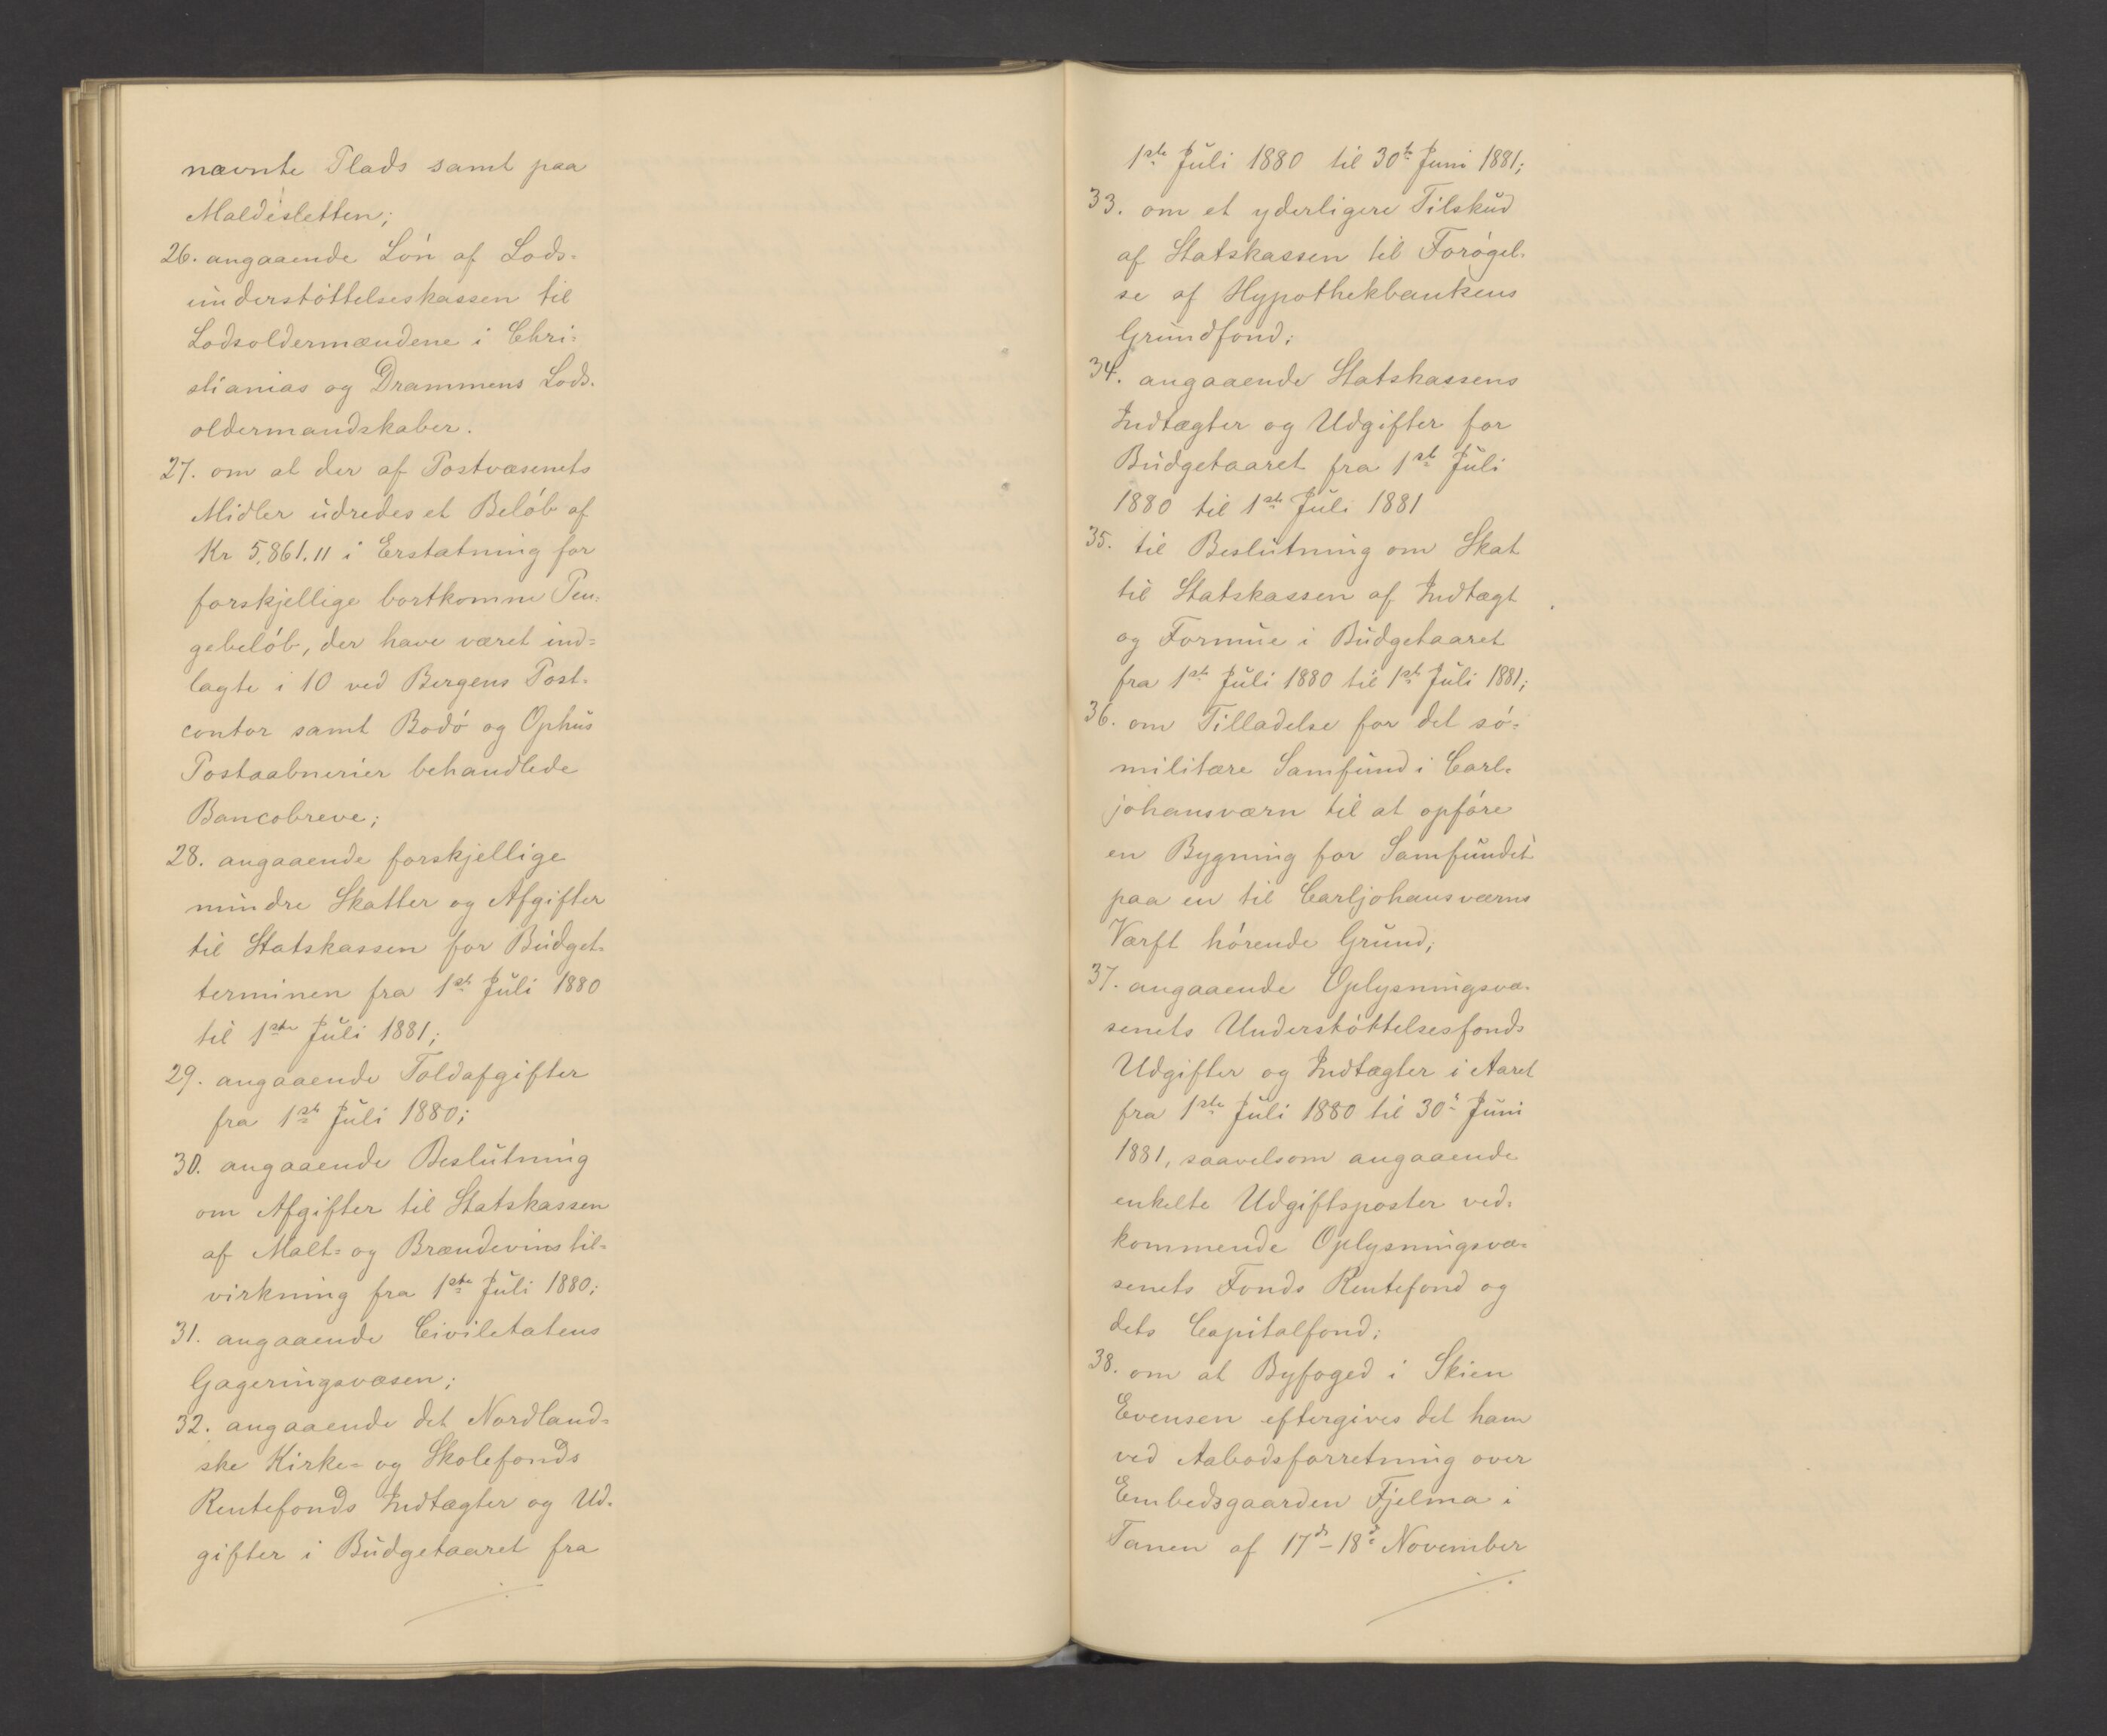 nævnte Plads samt paa
Maldesletten;
26. angaaende Lón af Lods-
understóttelseskassen til
Lodsoldermændene i Chri-
stianias og Drammens Lods-
oldermandskaber.
27. om at der af Postvæsenets
Midler udredes et Belób af
Kr 5,861.11 i Erstatning for
forskjellige bortkomne Pen-
gebelób, der have været ind-
lagte i 10 ved Bergens Post-
contor samt Bodó og Ophus
Postaabnerier behandlede
Bancobreve;
28. angaaende forskjellige
mindre Skatter og Afgifter
til Statskassen for Budget-
terminen fra 1ste Juli 1880
til 1ste Juli 1881;
29. angaaende Toldafgifter
fra 1ste Juli 1880;
30. angaaende Beslutning
om Afgifter til Statskassen
af Malt- og Brændevinstil-
virkning fra 1ste Juli 1880;
31. angaaende Civiletatens
Gageringsvæsen;
32. angaaende det Nordland-
ske Kirke- og Skolefonds
Rentefonds Indtægter og Ud-
gifter i Budgetaaret fra
1ste Juli 1880 til 30te Juni 1881;
33. om et yderligere Tilskud
af Statskassen til Forógel-
se af Hypothekbankens
Grundfond;
34. angaaende Statskassens
Indtægter og Udgifter for
Budgetaaret fra 1ste Juli
1880 til 1ste Juli 1881
35. til Beslutning om Skat
til Statskassen af Indtægt
og Formue i Budgetaaret
fra 1ste Juli 1880 til 1ste Juli 1881;
36. om Tilladelse for det só-
militære Samfund i Carl-
johansværn til at opfóre
en Bygning for Samfundet
paa en til Carljohansværns
Værft hórende Grund;
37. angaaende Oplysningsvæ-
senets Understóttelsesfonds
Udgifter og Indtægter i Aaret
fra 1ste Juli 1880 til 30te Juni
1881, saavelsom angaaende
enkelte Udgiftsposter ved-
kommende Oplysningsvæ-
senets Fonds Rentefond og
dets Capitalfond;
38. om at Byfoged i Skien
Evensen eftergives det ham
ved Aabodsforretning over
Embedsgaarden Fjelma i
Tanen af 17de-18de November